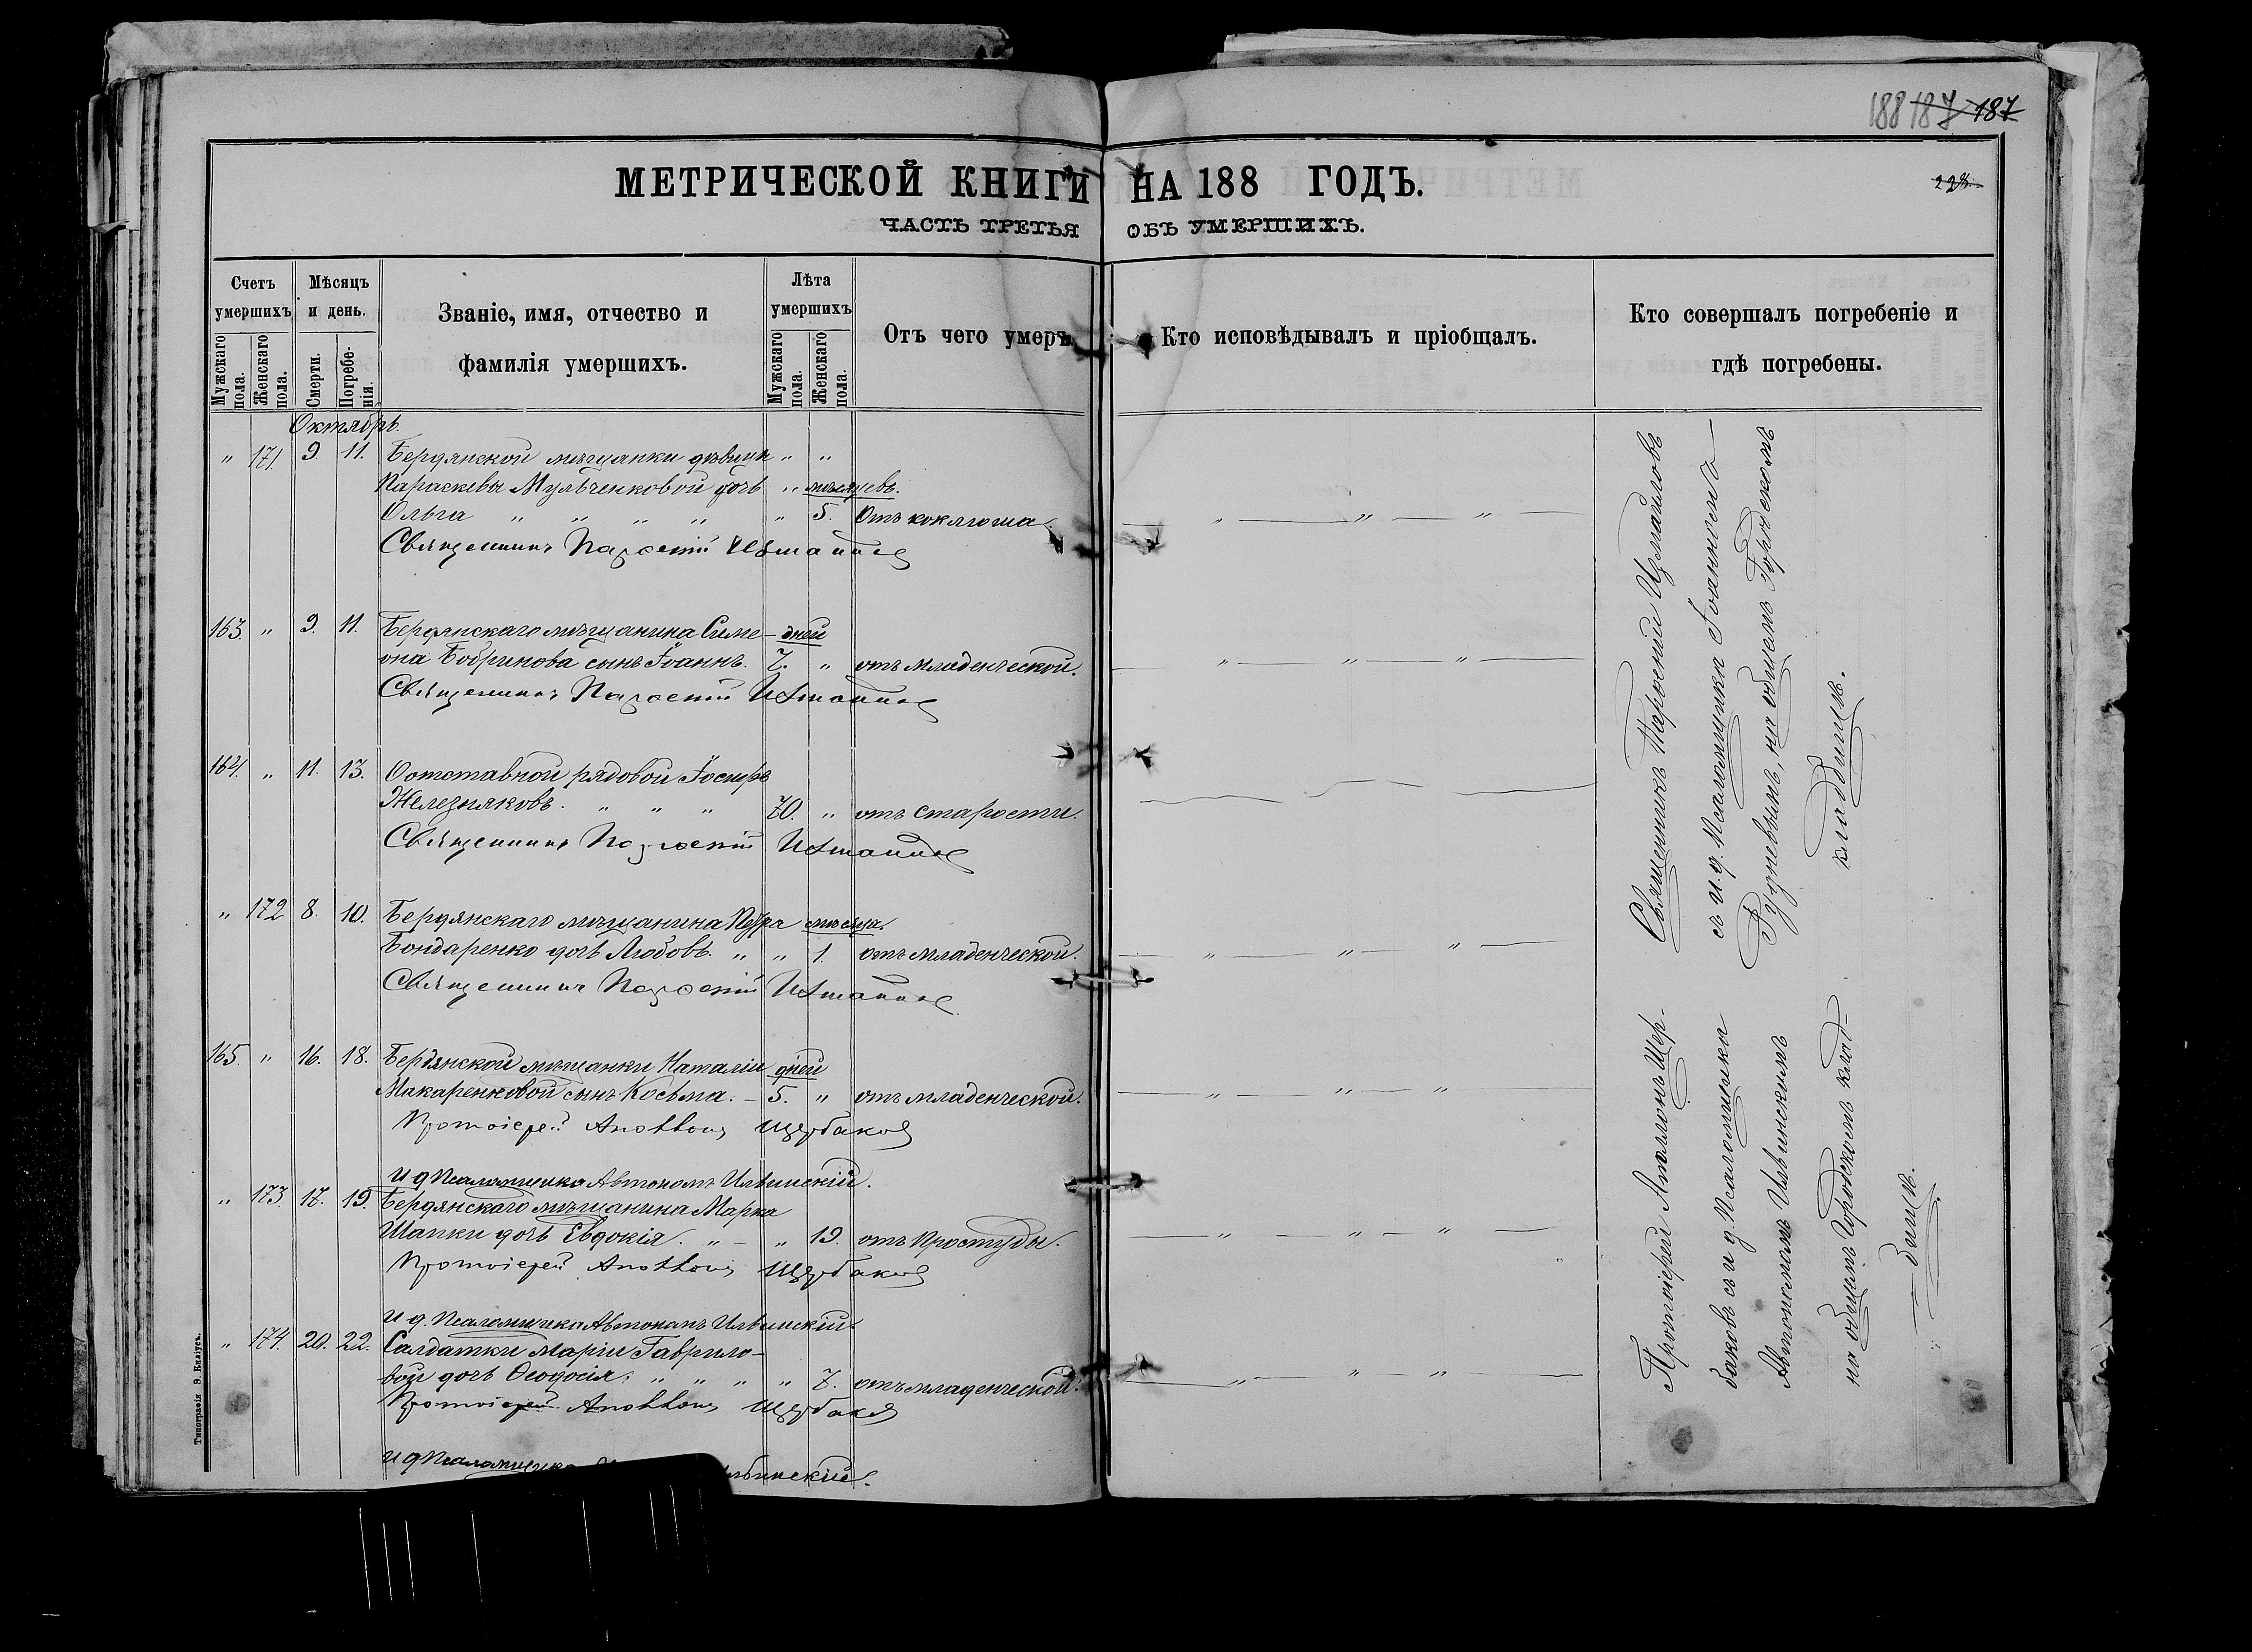 188 187 187
МЕТРИЧЕСКОЙ КНИГИ НА 188 ГОДЪ.
228.
ЧАСТЬ ТРЕТЬЯ ОБЪ УМЕРШИХЪ.
Счетъ умершихъ
Мужскаго пола.
Женскаго пола.
Мѣсяцъ и день.
Смерти.
Погребенія.
Званіе, имя, отчество и
фамилія умершихъ.
Лѣта умершихъ
Мужскаго пола.
Женскаго пола.
Отъ чего умеръ.
Кто исповѣдывалъ и пріобщалъ.
Кто совершалъ погребеніе и
гдѣ погребены.
Октябрь.
" 171. 9. 11. Бердянской мѣщанки дѣвицы " "
Параскевы Мульченковой дочь " мѣсяцевъ.
Ольга " " " " " 5. Отъ коклюша.
Священникъ Парѳеній Измаиловъ
163. " 9. 11. Бердянскаго мѣщанина Симе- дней
она Бобринова сынъ Іоаннъ. 7. " отъ младенческой.
Священникъ Парѳеній Измаиловъ
164. " 11. 13. Оотставной рядовой Іосифъ
Железняковъ. " " " 70. " отъ старости.
Священникъ Парѳеній Измаиловъ
" 172 8. 10. Бердянскаго мѣщанина Петра мѣсяца.
Бондаренко дочь Любовь. " " 1. отъ младенческой.
Священникъ Парѳеній Измаиловъ
165. " 16. 18. Бердянской мѣщанки Наталіи дней
Макаренковой сынъ Косьма. - 5. " отъ младенческой.
Протоіерей Аполлонъ Щербаковъ
И д Псаломщика Автономъ Ильинскій.
" 173. 17. 19. Бердянскаго мѣщанина Марка
Шапки дочь Евдокія. " - " 19. отъ простуды.
Протоіерей Аполлонъ Щербаковъ
И д. Псаломщика Автономъ Ильинскій.
" 174. 20. 22. Салдатки Маріи Гаврило-
вой дочь Ѳеодосія. " " " " 7. отъ младенческой.
Протоіерей Аполлонъ Щербаковъ
И д Псаломщика Ильинскій.
Священникъ Парѳеній Измаиловъ
съ и. д. Псаломщика Іоанномъ
Рудневымъ, на общемъ Городскомъ
кладбищѣ.
Протоіерей Аполлонъ Щер-
баковъ съ и д. Псаломщика
Автономомъ Ильинскимъ
на общемъ Городскомъ клад-
бищѣ.
Типографія Э. Киліусъ.